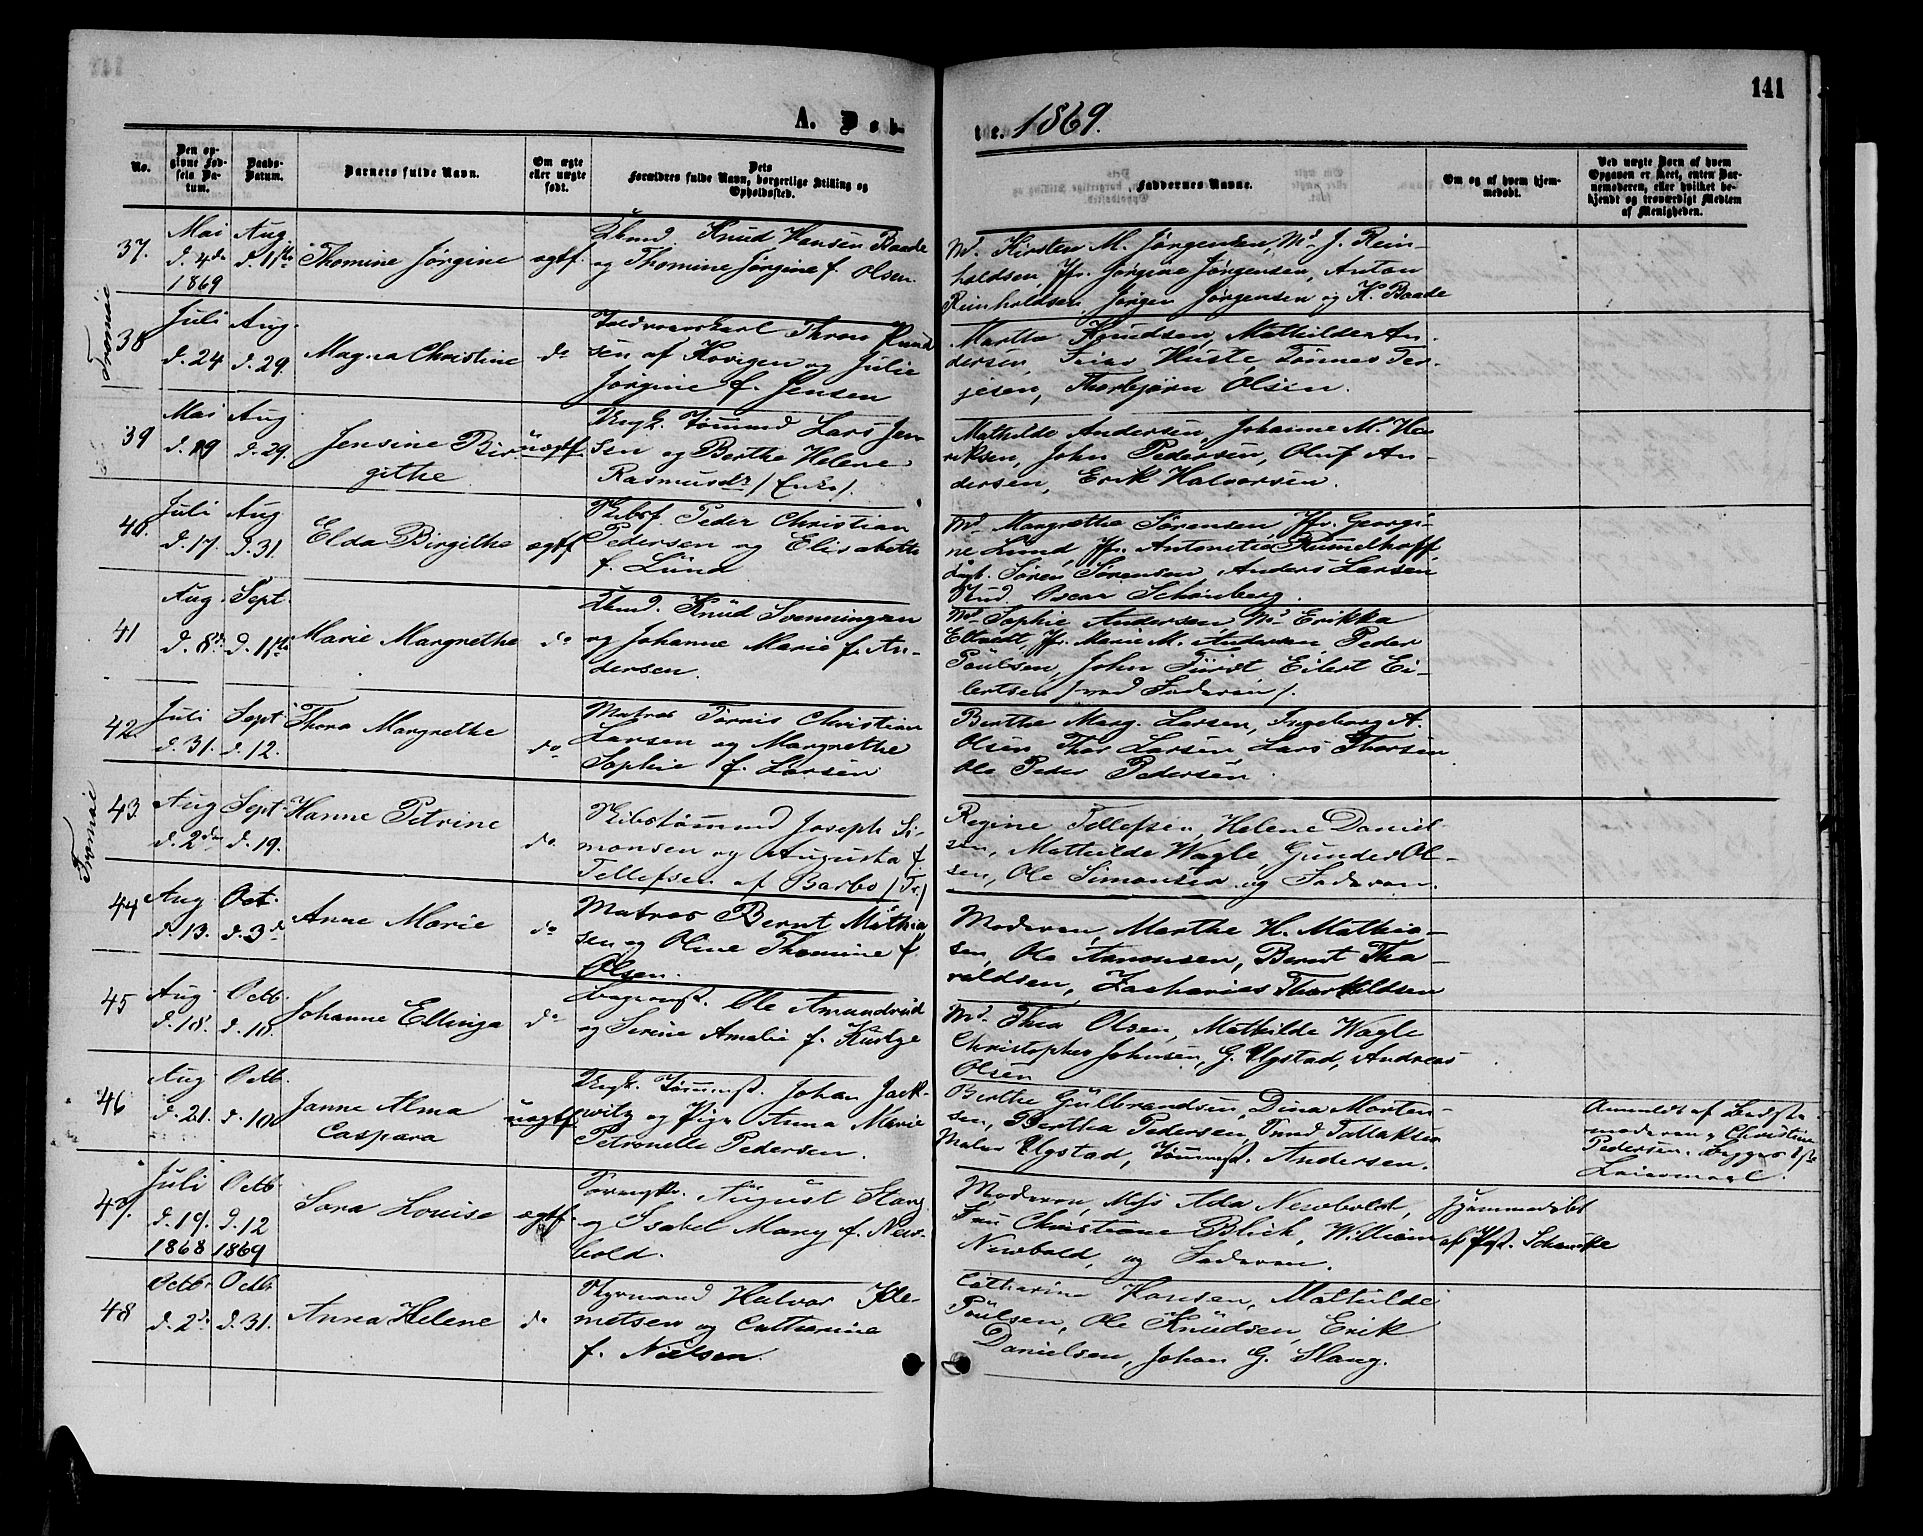 141
A. Døb-
te. 1869.
No.
Den op-
givne Fød-
sels Da-
tum.
Daabs-
Datum.
Barnets fulde Navn.
Om ægte
eller uægte
født.
Dets
Forældres fulde Navn, borgerlige Stilling og
Opholdssted.
Faddernes Navne.
Om og af hvem hjem-
medøbt.
Ved uægte Børn af hvem
Opgaven er skeet, enten Bar-
nemoderen, eller hvilket be-
kjendt og troværdigt Medlem
af Menigheden.
37.
Mai
d. 4de
1869
Aug
d. 11te
Thomine Jørgine
egtf.
Knud Hansen Baade
og Thomine Jørgine f. Olsen.
Md. Kirsten M. Jørgensen, Md. J. Rein-
holdsen, Jfr. Jørgine Jørgensen, Anton
Reinholdsen, Jørgen Jørgensen og K. Baade
Tromøie
38
Juli
d. 24
Aug.
d. 29.
Magna Christine
do
Thron Knud
sen af Kovigen og Julie
Jørgine f. Jensen
Martha Knudsen, Mathilde An-
dersen, Huste, Tønnes Ter-
jesen, Thorbjørn Olsen.
39
Mai
d. 19
Aug
d. 29.
Jensine Bir-
githe
uegtf.
Ungk. Tømmd Lars Jen-
sen og Berthe Helene
Rasmusdr / Enke /.
Mathilde Andersen, Johanne M. Hen
riksen, John Pedersen, Oluf An-
dersen, Erik Halvorsen.
40.
Juli
d. 17.
Aug
d. 31.
Elda Birgithe
egtf
Skibsf. Peder Christian
Pedersen og Elisabeth
f. Lund
Md. Margrethe Sørensen, Jfr. Georgi-
ne Lund, Jfr. Antonette Rummelhoff
Søren Sørensen, Anders Larsen
Stud. Oscar Schønberg.
41
Aug
d. 8de
Sept.
d. 11te
Marie Margrethe
do
Knud Svenningsen
og Johanne Marie f. An-
dersen.
Md. Sophie Andersen Md. Erikka
Jfr. Marie M. Andersen, Peder
Poulsen, John Fürst, Eilert Ei-
lertsen / ved Faderen /.
42.
Juli
d. 31.
Sept
d. 12.
Thora Margrethe
do
Matros Tønnis Christian
Larsen og Margrethe
Sophie f. Larsen
Berthe Marg. Larsen, Ingeborg A.
Olsen Thor Larsen, Lars Thorsen
Ole Peder Pedersen.
Tromøie
43.
Aug
d. 2den
Sept
d. 19.
Hanne Petrine
do.
Skibstømmd Joseph Si-
monsen og Augusta f.
Tellefsen af Barbo / Tr. /
Regine Tellefsen, Helene Daniel-
sen, Mathilde Wagle, Gunder Ol-
sen, Ole Simonsen og Faderen.
44
Aug
d. 13.
Oct.
d. 3d
Anne Marie
do
Matros Bernt Mathia
sen og Oline Thomine f.
Olsen.
Moderen, Marthe H. Mathia-
sen, Ole Aanonsen, Bernt Tha-
raldsen, Zacharias Thorkildsen
45
Aug.
d. 18.
Octb.
d. 10.
Johanne Ellinga
do
Ole Amundrud
og Serine Amalie f. Kustge
Md. Thea Olsen, Mathilde Wagle
Christopher Johnsen, G. Ugstad, Andreas
Olsen
46
Aug.
d. 21.
Octb.
d. 10
Janne Alma
Caspara
uegtf
Ungk. Tømmst. Johan Jack-
witz og Pige Anna Marie
Petronelle Pedersen.
Berthe Gulbrandsen, Dina Morten-
sen, Bertha Pedersen, Tallaksen
Maler Ugstad, Tømmst. Andersen.
Anmeldt af
moderen, Christine
Pedersen.
47.
Juli
d. 19.
1868
Octb.
d. 12
1869
Sara Louise
egtf
August Stang
og Isabel Mary f. New-
bold.
Moderen, Mss Ada Newbold,
Fru Christiane Blich, William
Newbold, og Faderen.
Hjemmedøbt
af Pst. Schanche
48
Octb.
d. 2de
Octb.
d. 31.
Anna Helene
do
Styrmand Halvor Kle-
metsen og Catharine
f. Nielsen.
Catharine Hansen, Mathilde
Poulsen, Ole Knudsen, Erik
Danielsen, Johan G. Slang.